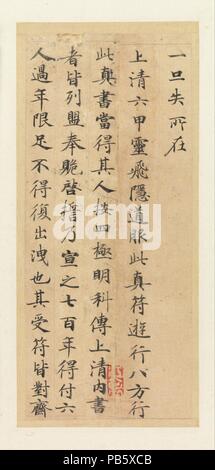 一旦失所在
上清六甲靈飛隱道服此真符遊行八方行
此真書當得其人按四極明科傳上清內書
者皆列盟奉貺啓擔乃宣之七百年得付六
人過年限足不得復出洩也其受符皆對齋
PB5XCB